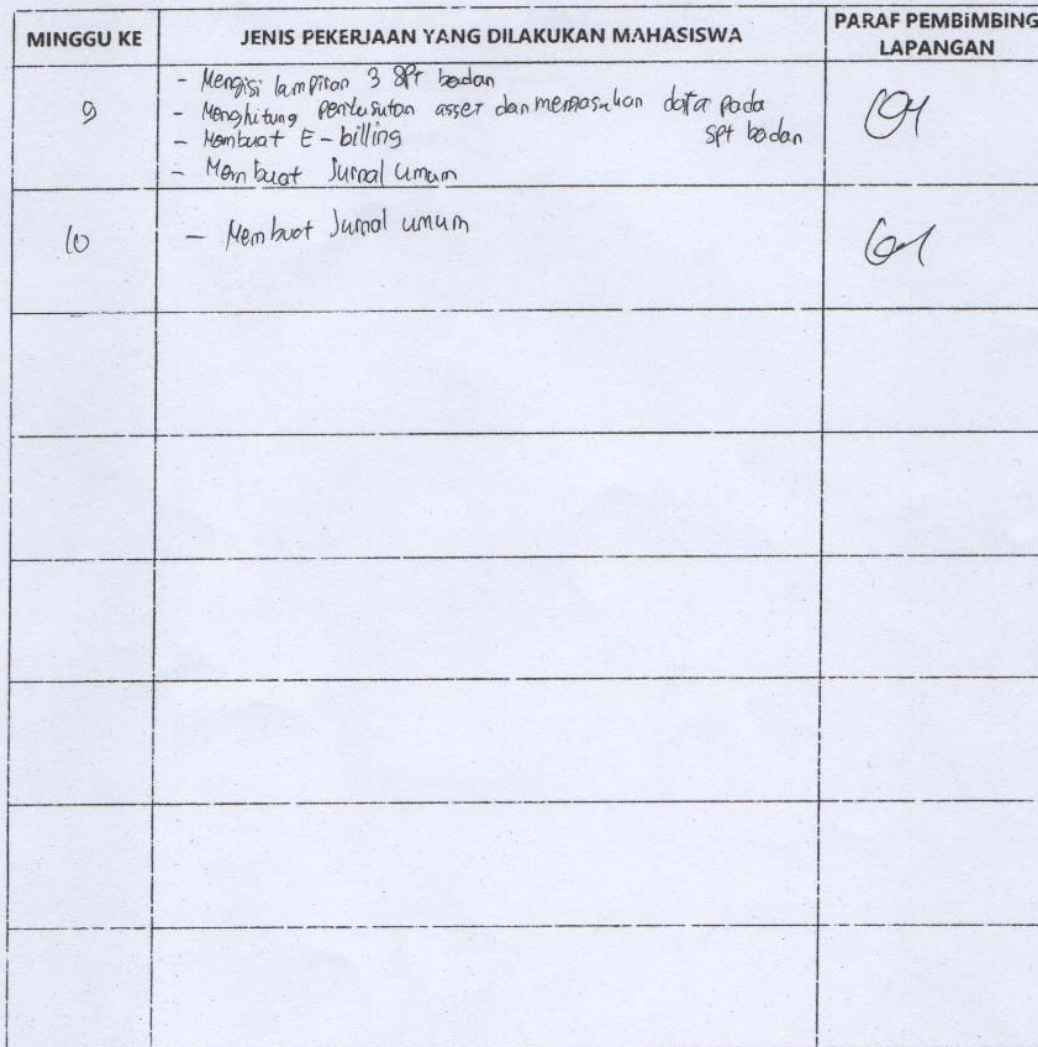 MINGGU KE
JENIS PEKERJAAN YANG DILAKUKAN MAHASISWA
PARAF PEMBIMBING
LAPANGAN
9
- Mengisi lampiran 3 SPT badan
- Menghitung penyusutan asset dan memasukan data pada
spt badan
- Membuat E-billing
- Membuat Jurnal umum
10
- Membuat Jurnal umum